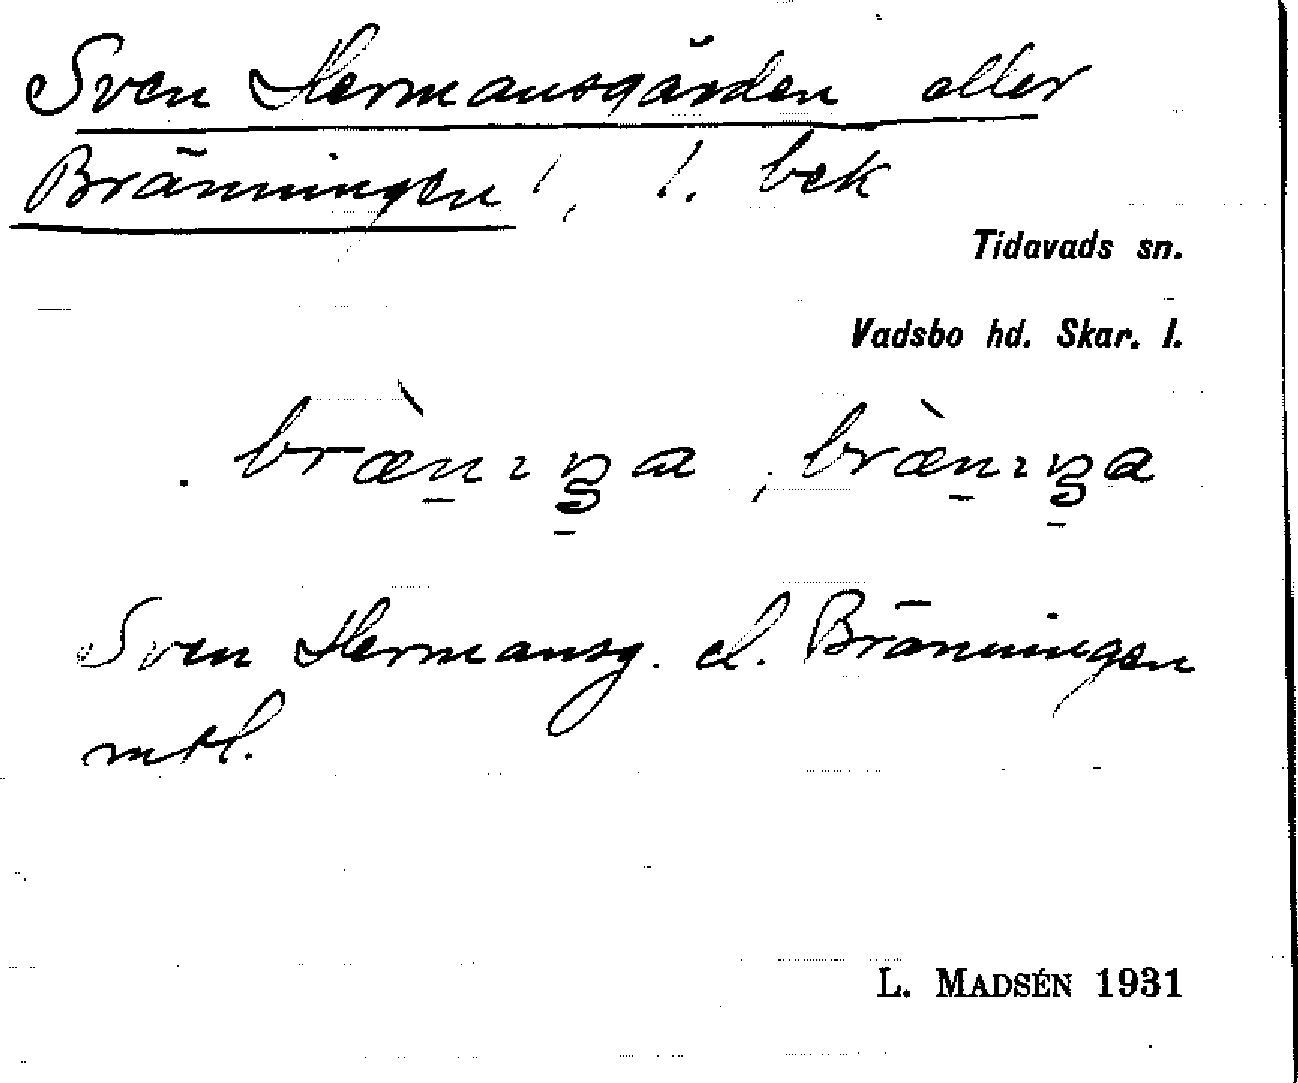 Sven Hermansgården eller
Bränningen, l. bek
Tidavads sn.
Vadsbo hd. Skar. l.
Sven Hermansg. el. Bränningen
mtl.
L. MADSÉN 1931